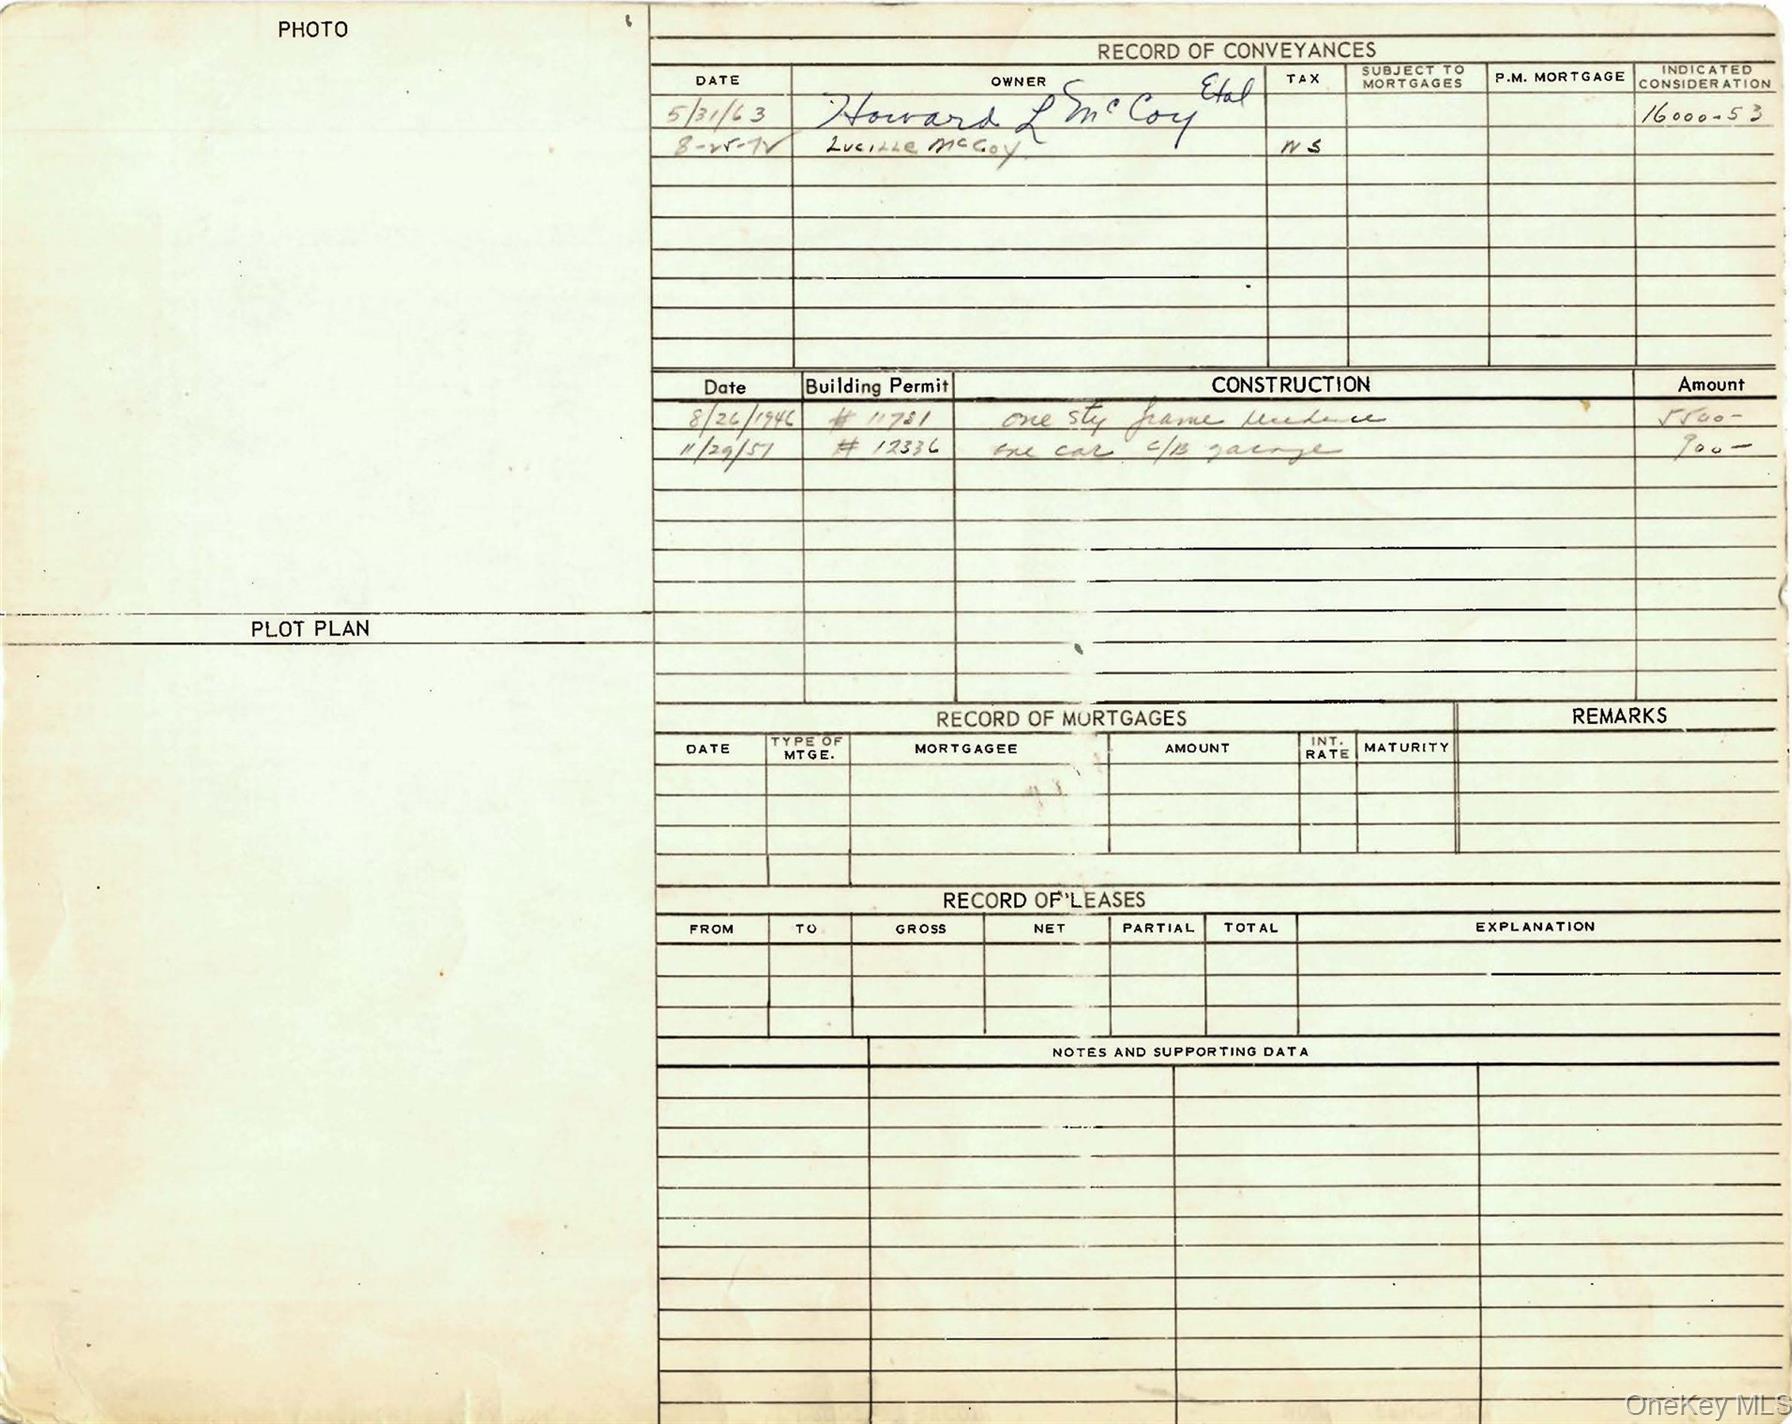 PHOTO
RECORD OF CONVEYANCES
DATE OWNER TAX SUBJECT TO MORTGAGES P.M. MORTGAGE INDICATED CONSIDERATION
5/31/63 Howard L McCoy Etal 16000-53
8-25-72 Lucille McCoy NS
Date Building Permit CONSTRUCTION Amount
8/26/1946 # 11781 one sty frame residence 5500-
11/29/51 # 12336 one car C/B garage 900-
PLOT PLAN
RECORD OF MORTGAGES REMARKS
DATE TYPE OF MTGE. MORTGAGEE AMOUNT INT. RATE MATURITY
RECORD OF LEASES
FROM TO GROSS NET PARTIAL TOTAL EXPLANATION
NOTES AND SUPPORTING DATA
OneKey MLS